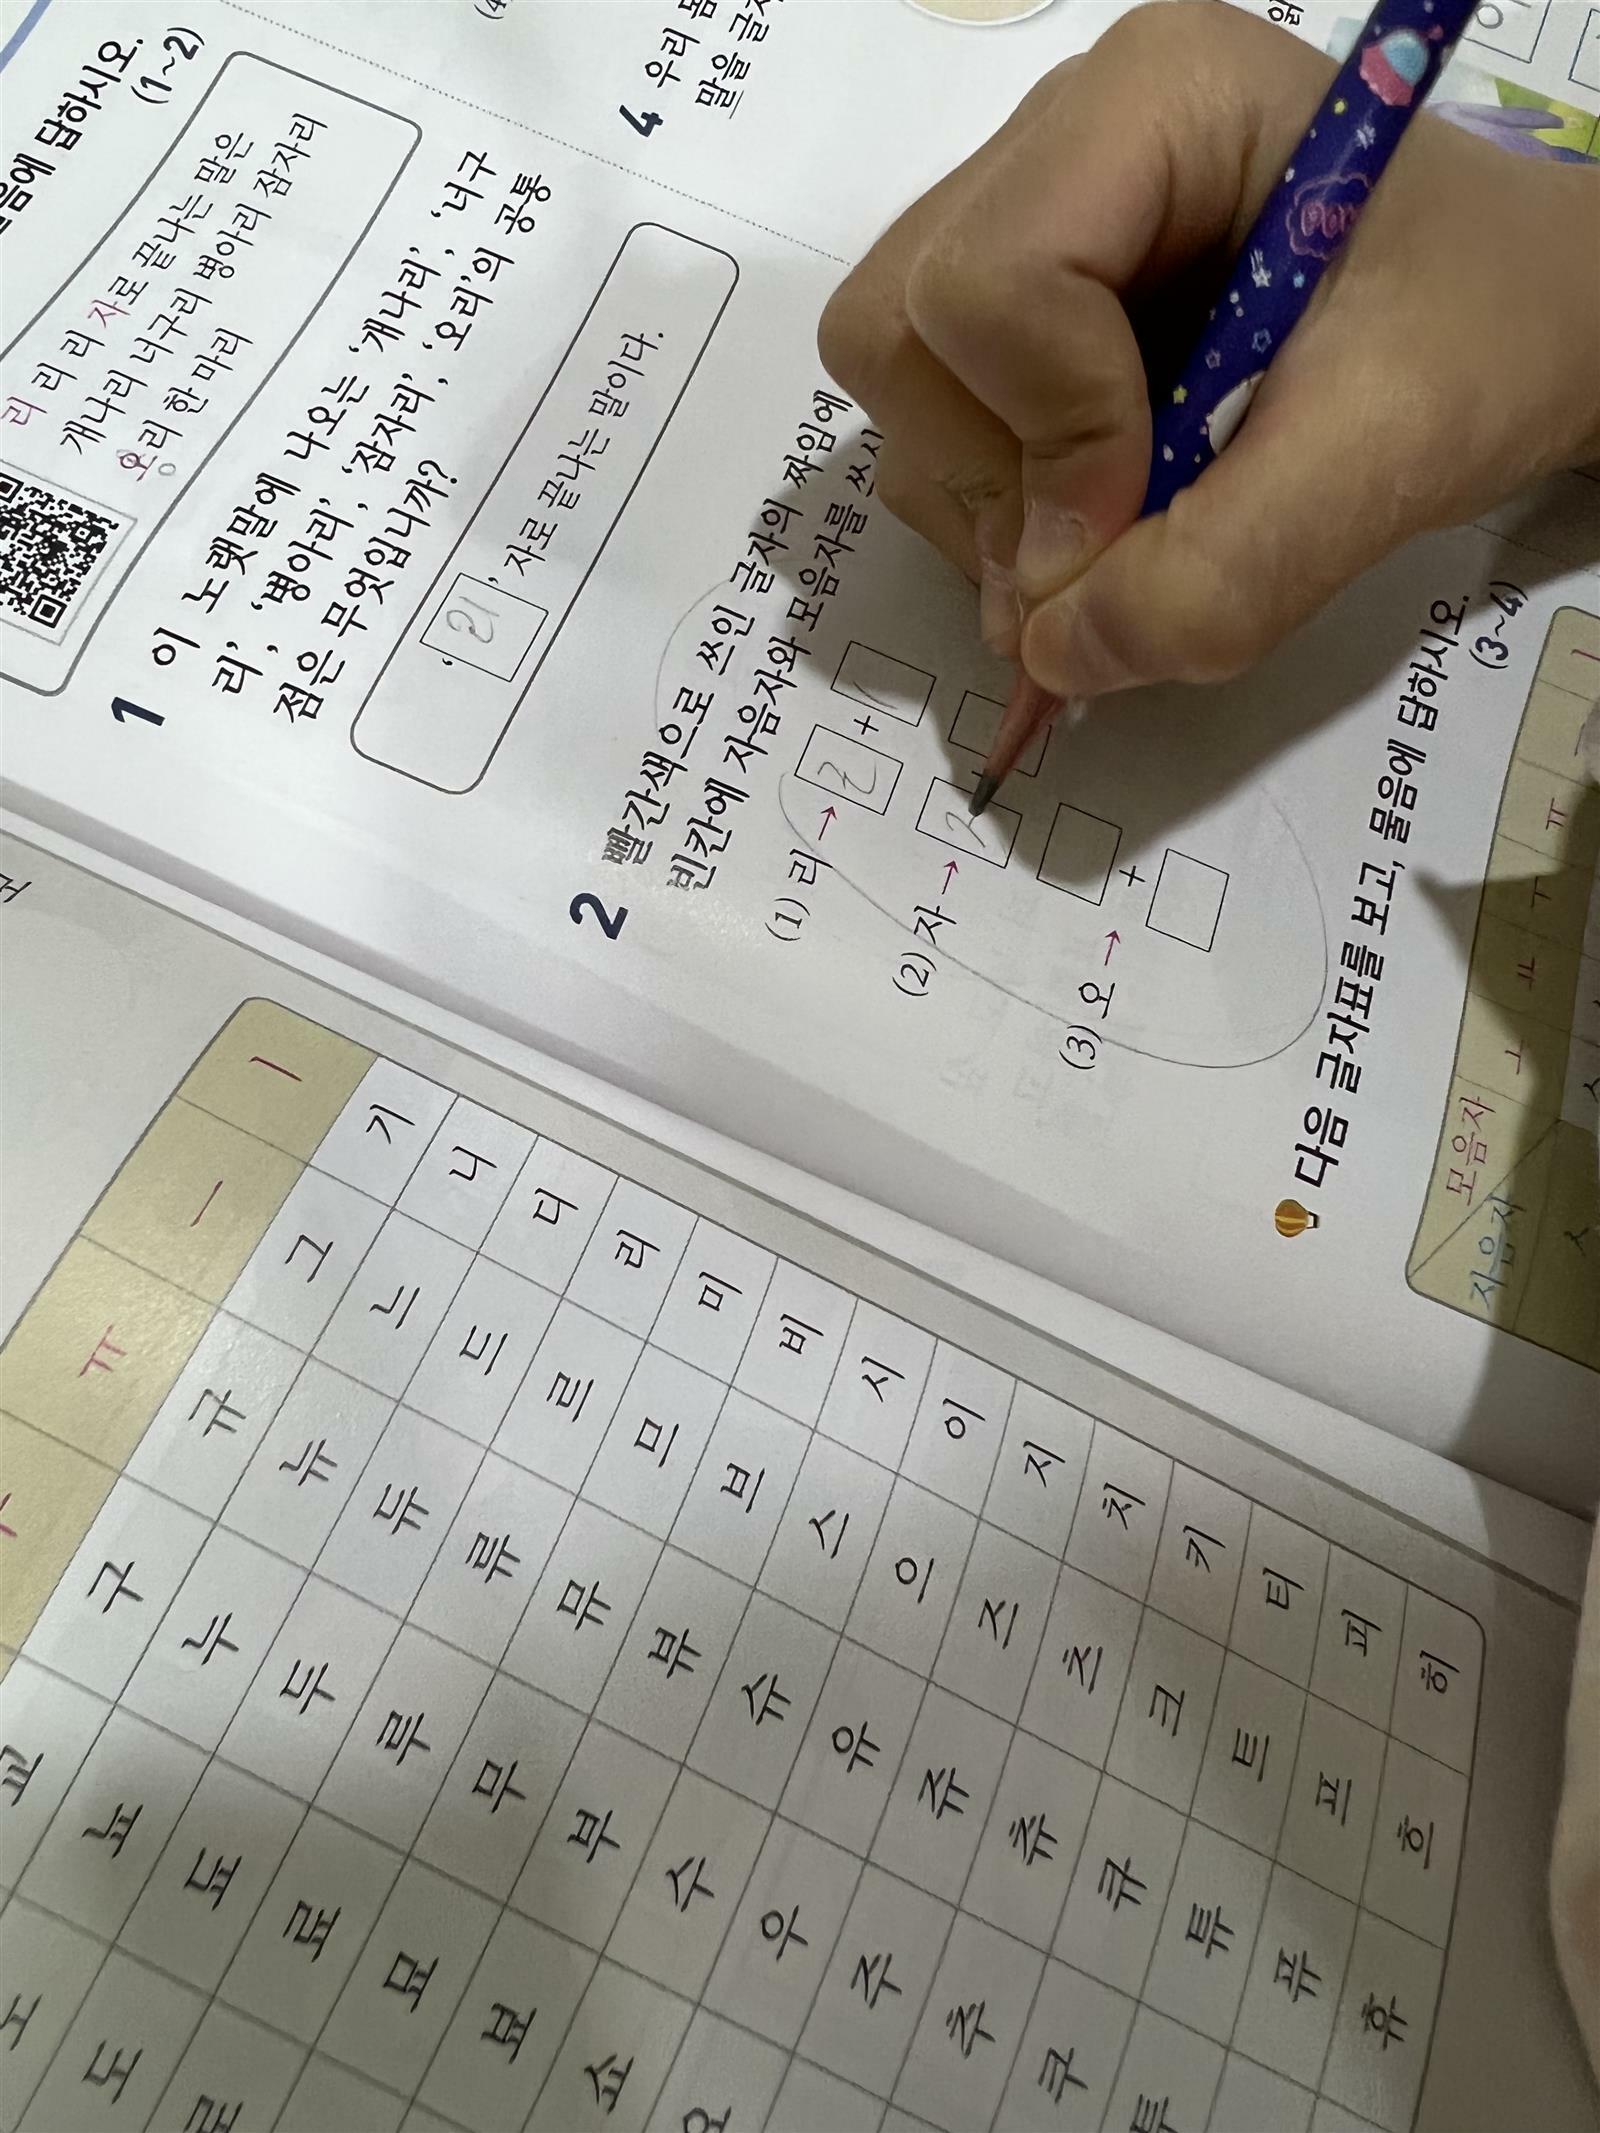 음에 답하시오.
(1~2)
리 리 리 자로 끝나는 말은
개나리 너구리 병아리 잠자리
오리 한 마리
1 이 노랫말에 나오는 '개나리', '너구
리', '병아리', '잠자리', '오리'의 공통
점은 무엇입니까?
'리' 자로 끝나는 말이다.
2 빨간색으로 쓰인 글자의 짜임에
빈칸에 자음자와 모음자를 쓰시
(1) 리 → ㄹ + ㅣ
(2) 자 → ㅈ
(3) 오 → +
다음 글자표를 보고, 물음에 답하시오.
(3~4)
모음자 ㅗ ㅛ ㅜ ㅠ
자음자
4 우리 몸
말을 글자
ㅠ ㅡ ㅣ
교 구 규 그 기
노 뇨 누 뉴 느 니
도 됴 두 듀 드 디
로 료 루 류 르 리
묘 무 뮤 므 미
뵤 부 뷰 브 비
쇼 수 슈 스 시
요 우 유 으 이
주 쥬 즈 지
추 츄 츠 치
쿠 큐 크 키
투 튜 트 티
퓨 프 피
휴 흐 히